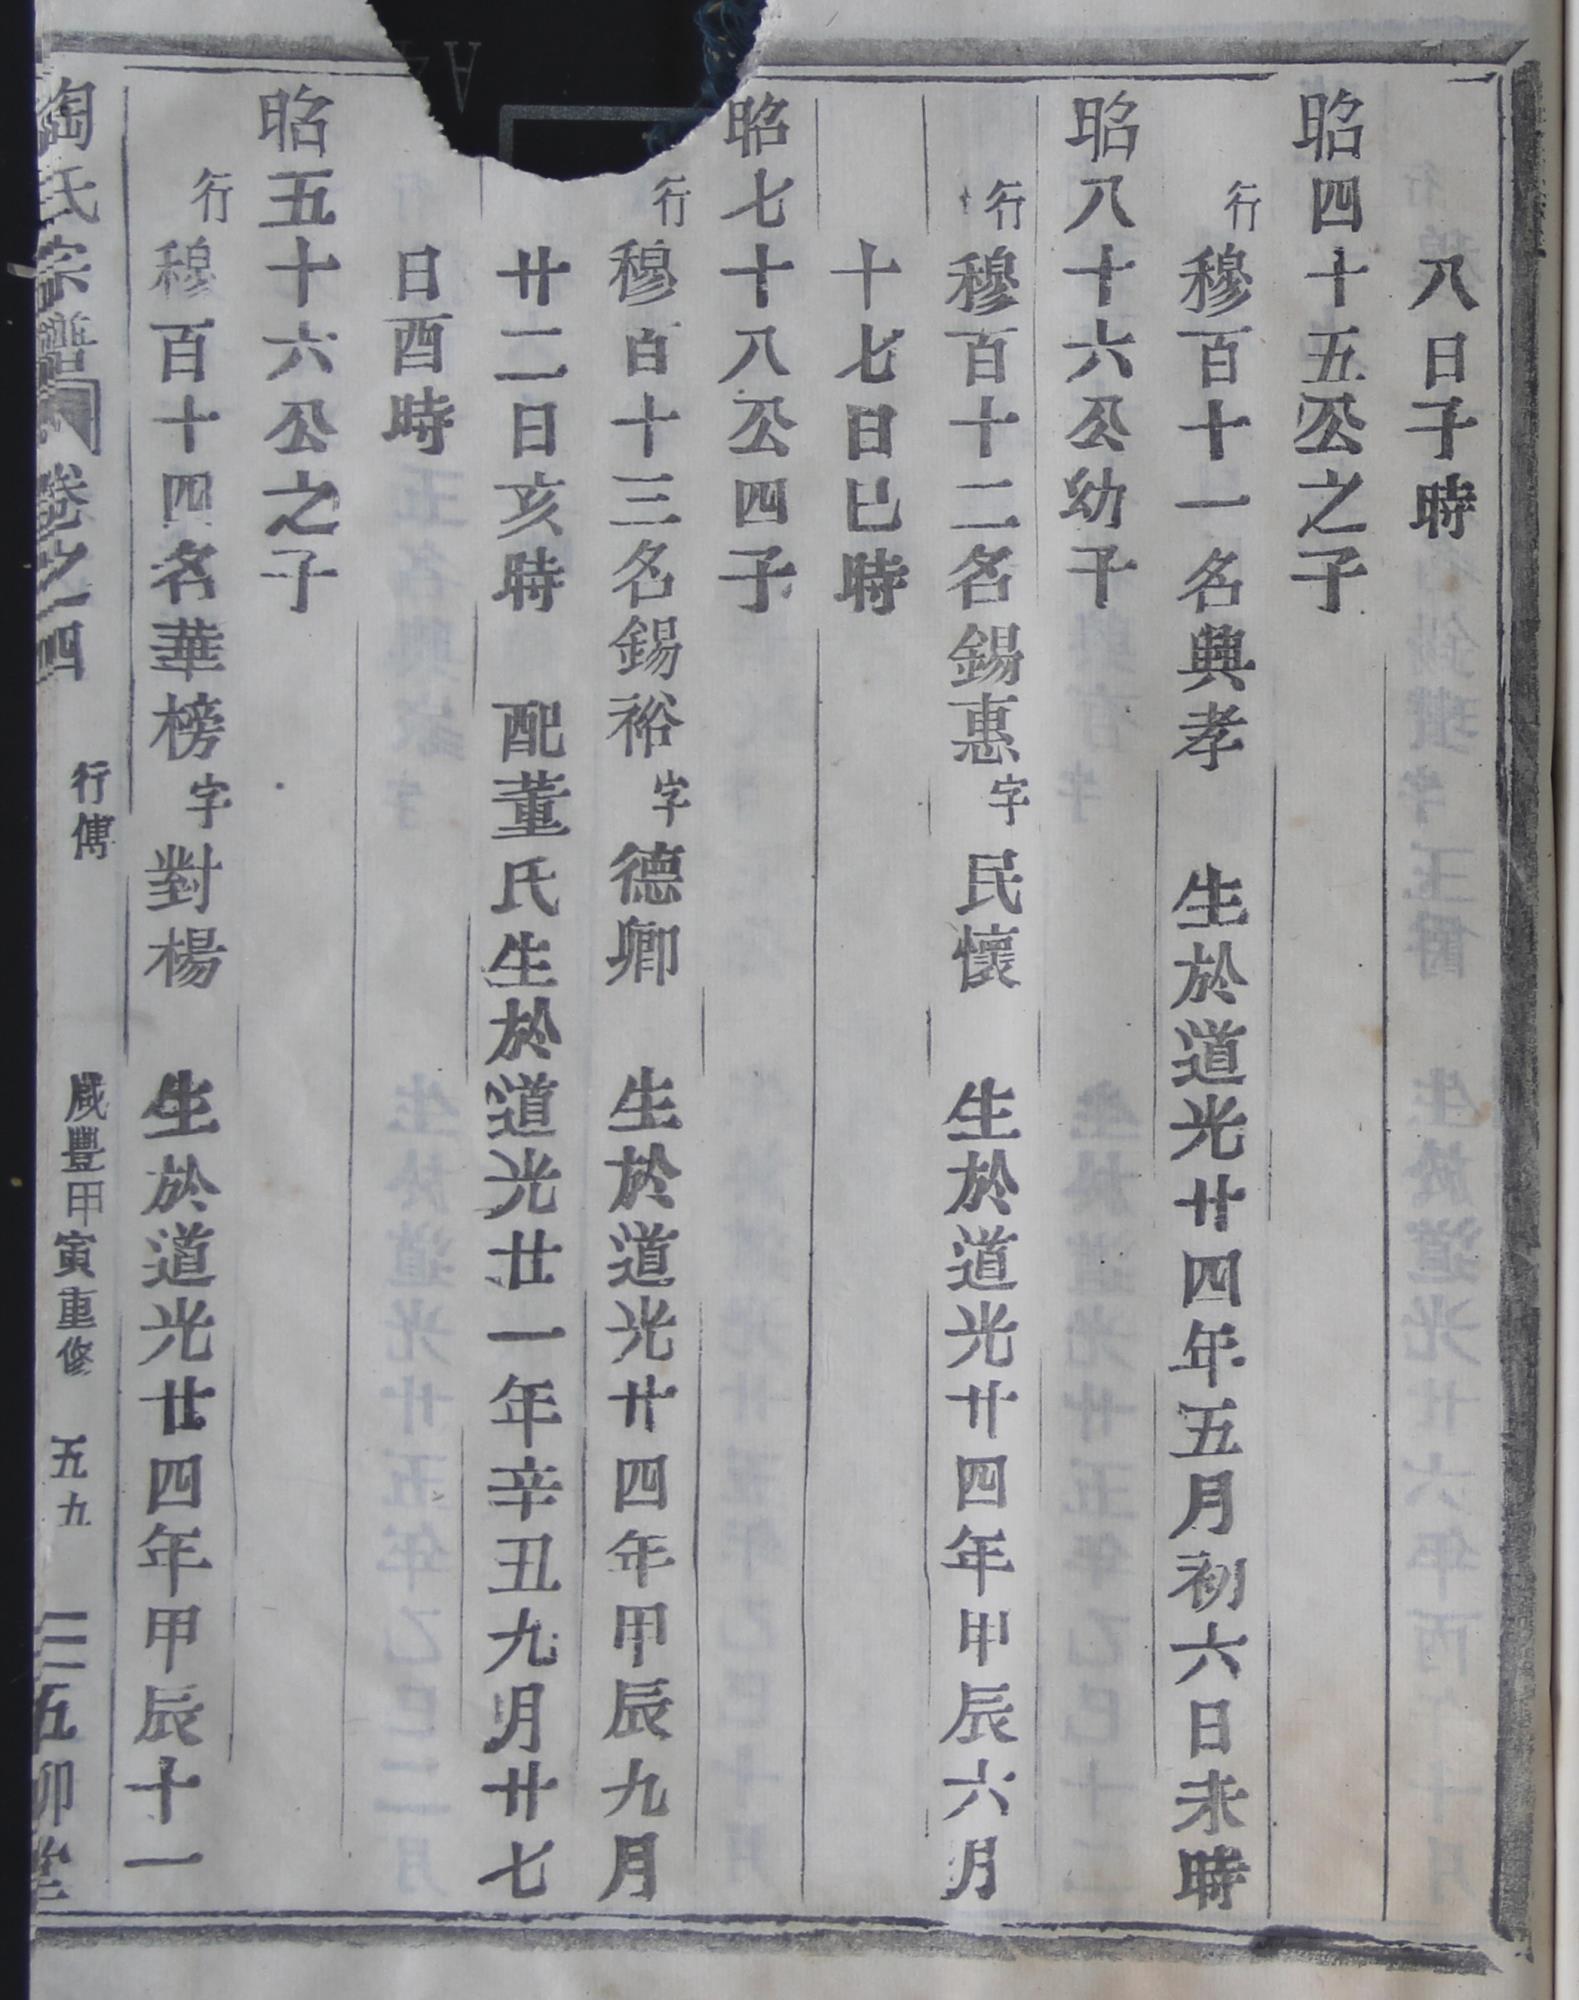 八日子時
昭四十五公之子
行穆百十一名興孝　生於道光廿四年五月初六日未時
昭八十六公幼子
行穆百十二名錫惠字民懷　生於道光廿四年甲辰六月
十七日巳時
昭七十八公四子
行穆百十三名錫裕字德卿　生於道光廿四年甲辰九月
廿二日亥時　配董氏生於道光廿一年辛丑九月廿七
日酉時
昭五十六公之子
行穆百十四名華榜字對楊　生於道光廿四年甲辰十一
陶氏宗譜 卷之四 行傳 咸豐甲寅重修 五九 三五卯堂